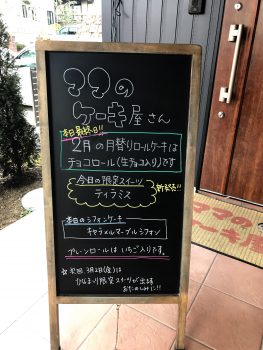 ママの
ケーキ屋さん
本日最終日!!
2月の月替りロールケーキは
チョコロール(生チョコ入り)です
今日の限定スイーツ
ティラミス
新発売!!
本日のシフォンケーキ
キャラメルマーブルシフォン
プレーンロールはいちご入りです。
☆次回 3月2日(金)は
限定スイーツが出ます
おたのしみに!!
ママの
ケーキ屋